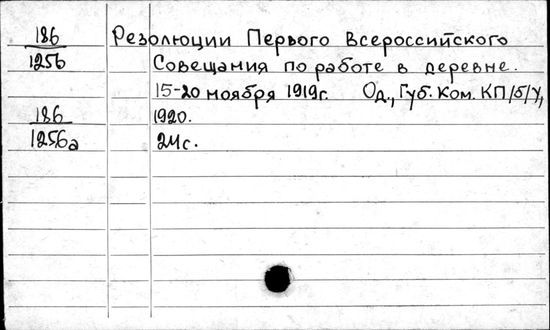 186 Резолюции Первого Всероссийского
1256 Совещания по работе в деревне.
15-20 ноября 1919г. Од., Губ. Ком. КП/б/У,
186 1920.
1256а 24с.